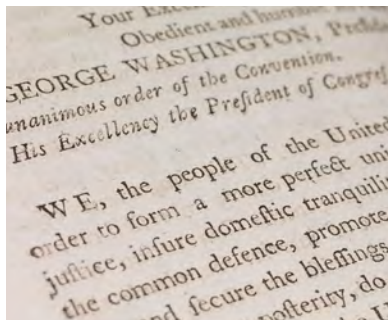 Your Excel
Obedient and humble
GEORGE WASHINGTON, Preſid
unanimous order of the Convention.
His Excellency the Preſident of Congreſ
WE, the people of the United
order to form a more perfect uni
juſtice, inſure domeſtic tranquilit
the common defence, promote
and ſecure the bleſſings
poſterity, do